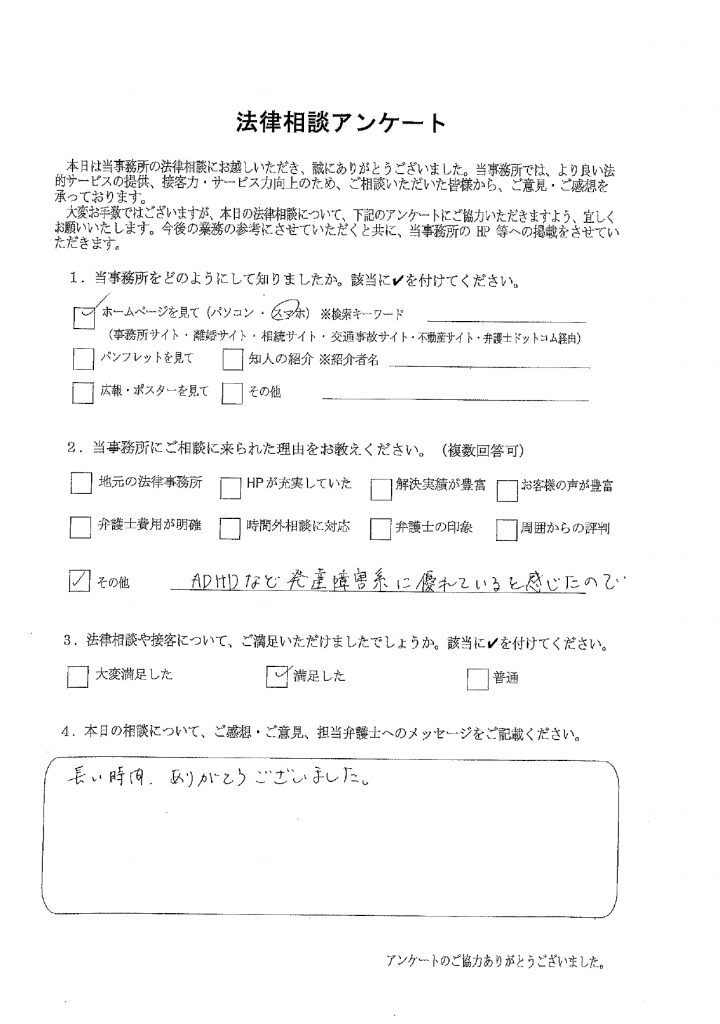 法律相談アンケート
本日は当事務所の法律相談にお越しいただき、誠にありがとうございました。当事務所では、より良い法
的サービスの提供、接客力・サービス力向上のため、ご相談いただいた皆様から、ご意見・ご感想を
承っております。
大変お手数ではございますが、本日の法律相談について、下記のアンケートにご協力いただきますよう、宜しく
お願いいたします。今後の業務の参考にさせていただくと共に、当事務所の HP 等への掲載をさせてい
ただきます。
1．当事務所をどのようにして知りましたか。該当に✔を付けてください。
☑ ホームページを見て（パソコン・スマホ）※検索キーワード
（事務所サイト・離婚サイト・相続サイト・交通事故サイト・不動産サイト・弁護士ドットコム経由）
□ パンフレットを見て □ 知人の紹介 ※紹介者名
□ 広報・ポスターを見て □ その他
2．当事務所にご相談に来られた理由をお教えください。（複数回答可）
□ 地元の法律事務所 □ HPが充実していた □ 解決実績が豊富 □ お客様の声が豊富
□ 弁護士費用が明確 □ 時間外相談に対応 □ 弁護士の印象 □ 周囲からの評判
☑ その他 ADHDなど発達障害系に優れていると感じたので
3．法律相談や接客について、ご満足いただけましたでしょうか。該当に✔を付けてください。
□ 大変満足した ☑ 満足した □ 普通
4．本日の相談について、ご感想・ご意見、担当弁護士へのメッセージをご記載ください。
長い時間、ありがとうございました。
アンケートのご協力ありがとうございました。